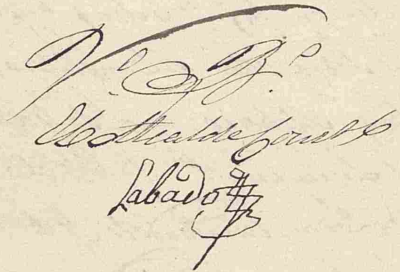 V.º B.º
El Alcalde Const.l
Labado